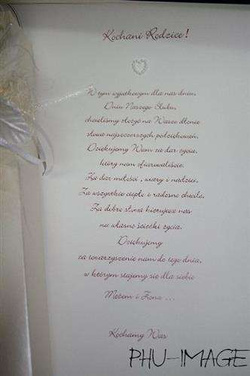 Kochani Rodzice!
W tym wyjątkowym dla nas dniu,
Dniu Naszego Ślubu,
chcieliśmy złożyć na Wasze dłonie
słowa najszczerszych podziękowań.
Dziękujemy Wam za dar życia,
który nam ofiarowaliście.
Za dar miłości, wiary i nadziei,
Za wszystkie ciepłe i radosne chwile,
Za dobre słowa kierujące nas
na własne ścieżki życia.
Dziękujemy
za towarzyszenie nam do tego dnia,
w którym stajemy się dla siebie
Mężem i Żoną ...
Kochamy Was
PHU-IMAGE